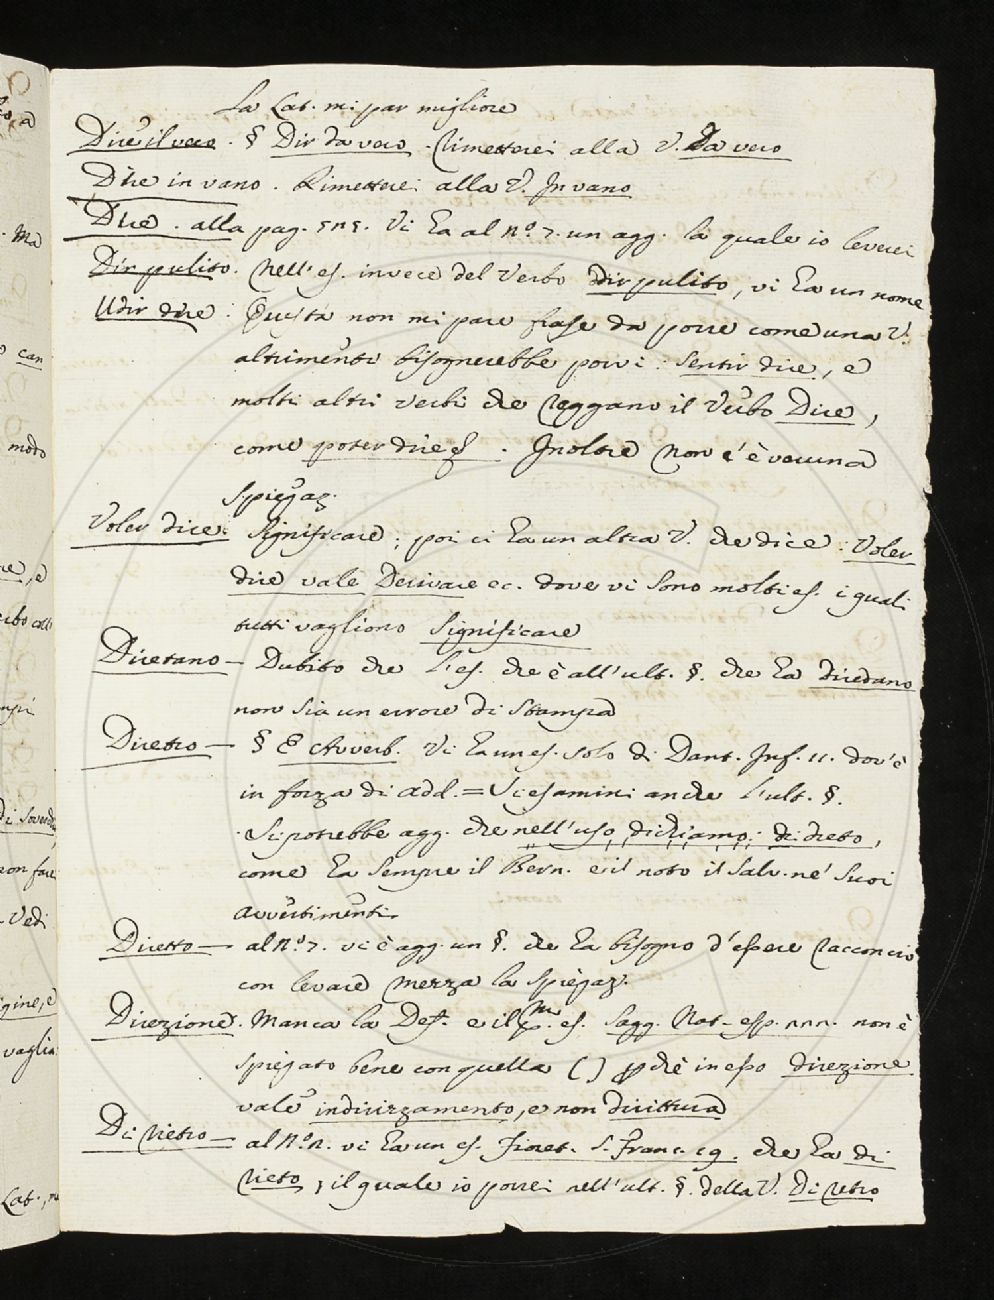 La Lat. mi par migliore
Dire il vero. § Dir da vero. Rimetterei alla V. Da vero
Dire in vano. Rimetterei alla V. In vano
Dire. alla pag. 515. Vi ha al n.º 7. un agg. la quale io leverei
Dir pulito. Nell'es. invece del Verbo dir pulito, vi ha un nome
Udir dire: Questa non mi pare frase da porre come una V.
altrimenti bisognerebbe porvi: Sentir dire, e
molti altri verbi che reggano il Verbo Dire,
come poter dire . Inoltre non c'è veruna
spiegaz.
Voler dire: Significare; poi ci ha un altra V. che dice: Voler
dire vale Derivare ec. dove vi sono molti es. i quali
tutti vagliono Significare
Diretano — Dubito che l'es. che è all'ult. §. che ha diredano
non sia un errore di Stampa
Diretro — § E Avverb. Vi ha un es. solo di Dant. Inf. 11. dov'è
in forza di add. = Si esamini anche l'ult. §.
Si potrebbe agg. che nell'uso dichiamo: di dreto,
come ha sempre il Bern. e il notò il Salv. ne' suoi
Avvertimenti.
Diretto — al N.º 7. vi è agg. un §. che ha bisogno d'essere racconcio
con levare mezza la spiegaz.
Direzione. Manca la Def. e il p.mo es. Sagg. Nat. esp. non è
spiegato bene con quella ( ) perchè in esso direzione
vale indirizzamento, e non dirittura
Di rietro — al N.º vi ha un es. Fioret. S. Franc. 19. che ha di
rieto, il quale io porrei nell'ult. §. della V. Di retro